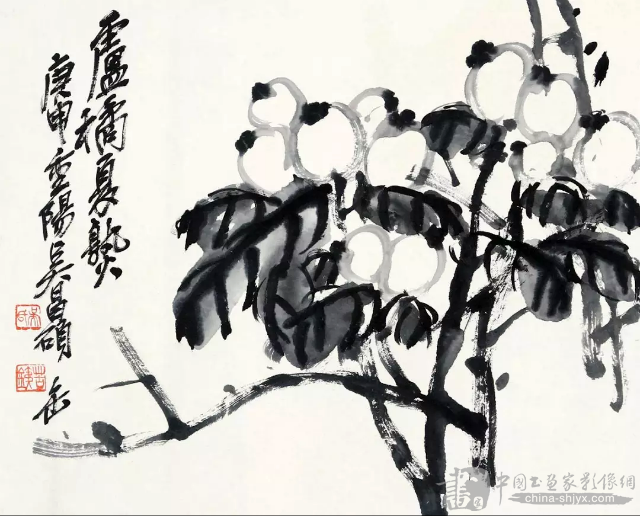 盧橘夏熟
庚申重陽吳昌碩
缶
中國書画家影像網
china-shjyx.com